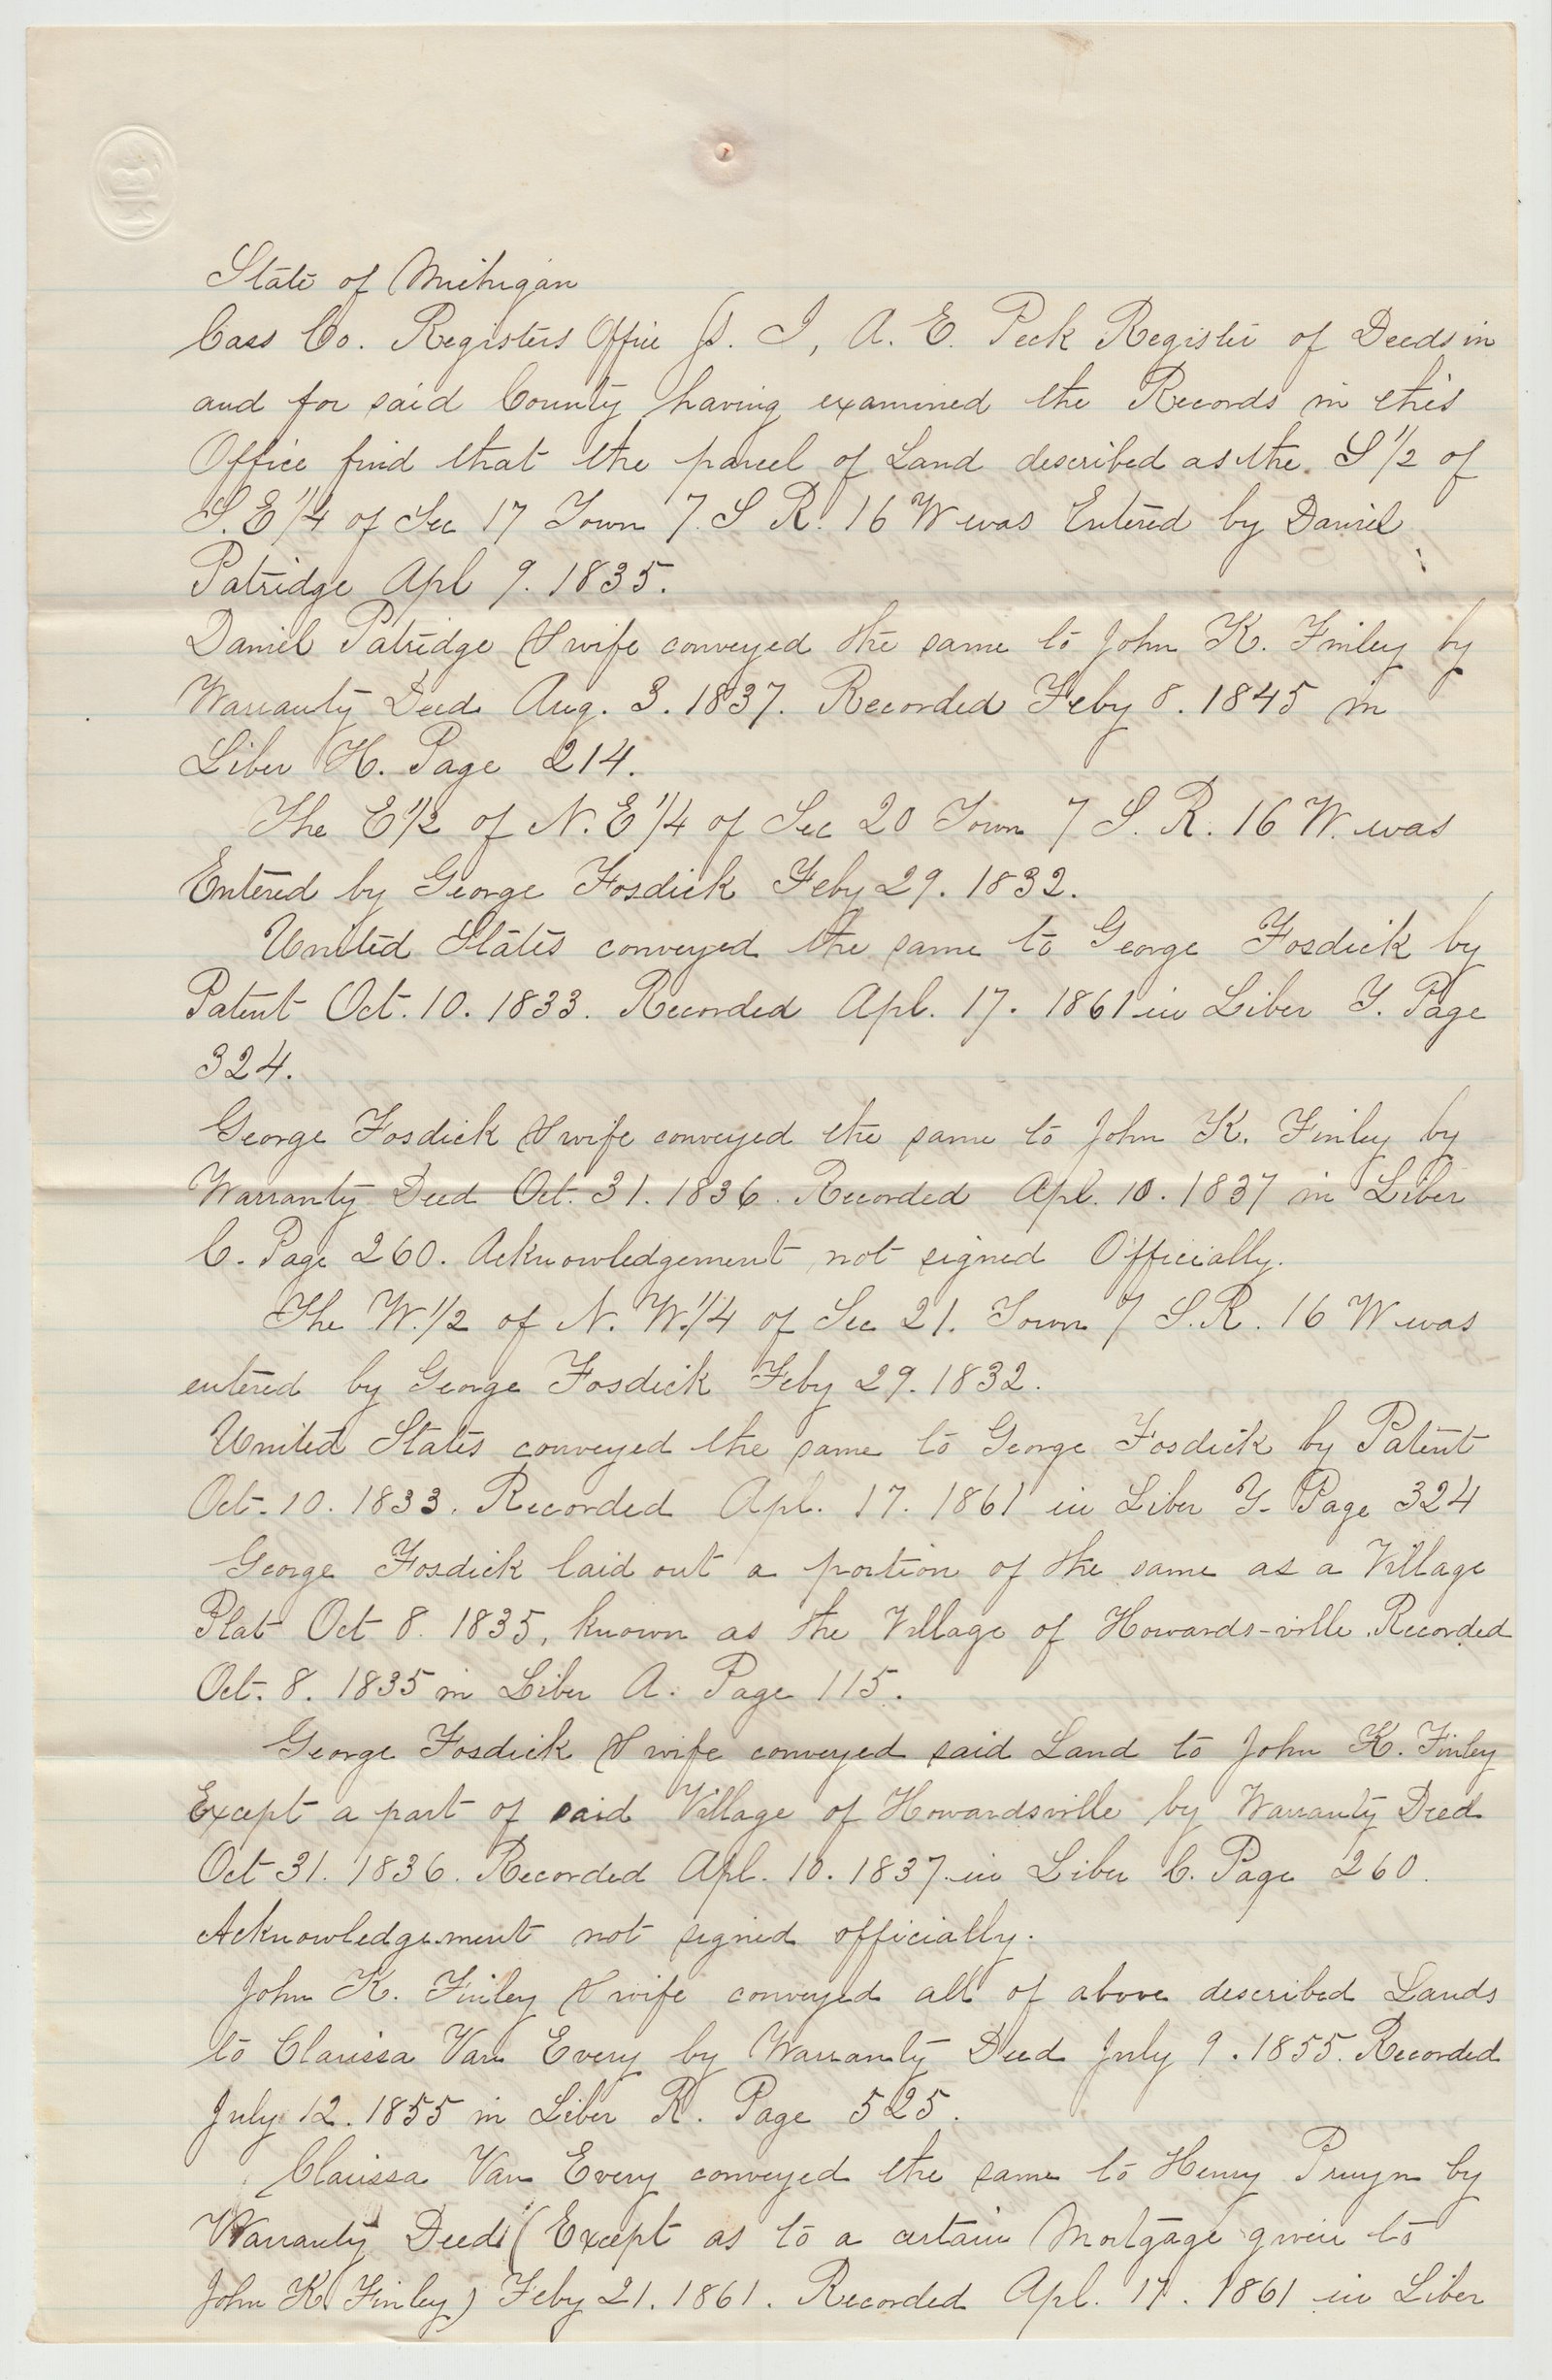 State of Michigan
Cass Co. Registers Office ss. I, A. E. Peck Register of Deeds in
and for said County having examined the Records in this
Office find that the parcel of Land described as the S 1/2 of
S. E 1/4 of Sec 17 Town 7. S R. 16 W was Entered by Daniel
Patridge Apl 9. 1835.
Daniel Patridge & wife conveyed the same to John K. Finley by
Warranty Deed Aug. 3. 1837. Recorded Feby 8. 1845 in
Liber H. Page 214.
The E 1/2 of N. E 1/4 of Sec 20 Town 7 S. R. 16 W. was
Entered by George Fosdick Feby 29. 1832.
United States conveyed the same to George Fosdick by
Patent Oct. 10. 1833. Recorded Apl. 17. 1861 in Liber Y. Page
324.
George Fosdick & wife conveyed the same to John K. Finley by
Warranty Deed Oct. 31. 1836. Recorded Apl. 10. 1837 in Liber
C. Page 260. Acknowledgement not signed Officially.
The W. 1/2 of N. W. 1/4 of Sec 21. Town 7 S. R. 16 W was
entered by George Fosdick Feby 29. 1832.
United States conveyed the same to George Fosdick by Patent
Oct. 10. 1833. Recorded Apl. 17. 1861 in Liber Y. Page 324
George Fosdick laid out a portion of the same as a Village
Plat Oct 8. 1835, known as the Village of Howards-ville Recorded
Oct. 8. 1835 in Liber A. Page 115.
George Fosdick & wife conveyed said Land to John K. Finley
Except a part of said Village of Howardsville by Warranty Deed
Oct 31. 1836. Recorded Apl. 10. 1837 in Liber C. Page 260.
Acknowledgement not signed officially.
John K. Finley & wife conveyed all of above described Lands
to Clarissa Van Every by Warranty Deed July 9. 1855. Recorded
July 12. 1855 in Liber R. Page 525.
Clarissa Van Every conveyed the same to Henry Pruyn by
Warranty Deed (Except as to a certain Mortgage given to
John K Finley) Feby 21. 1861. Recorded Apl. 17. 1861 in Liber